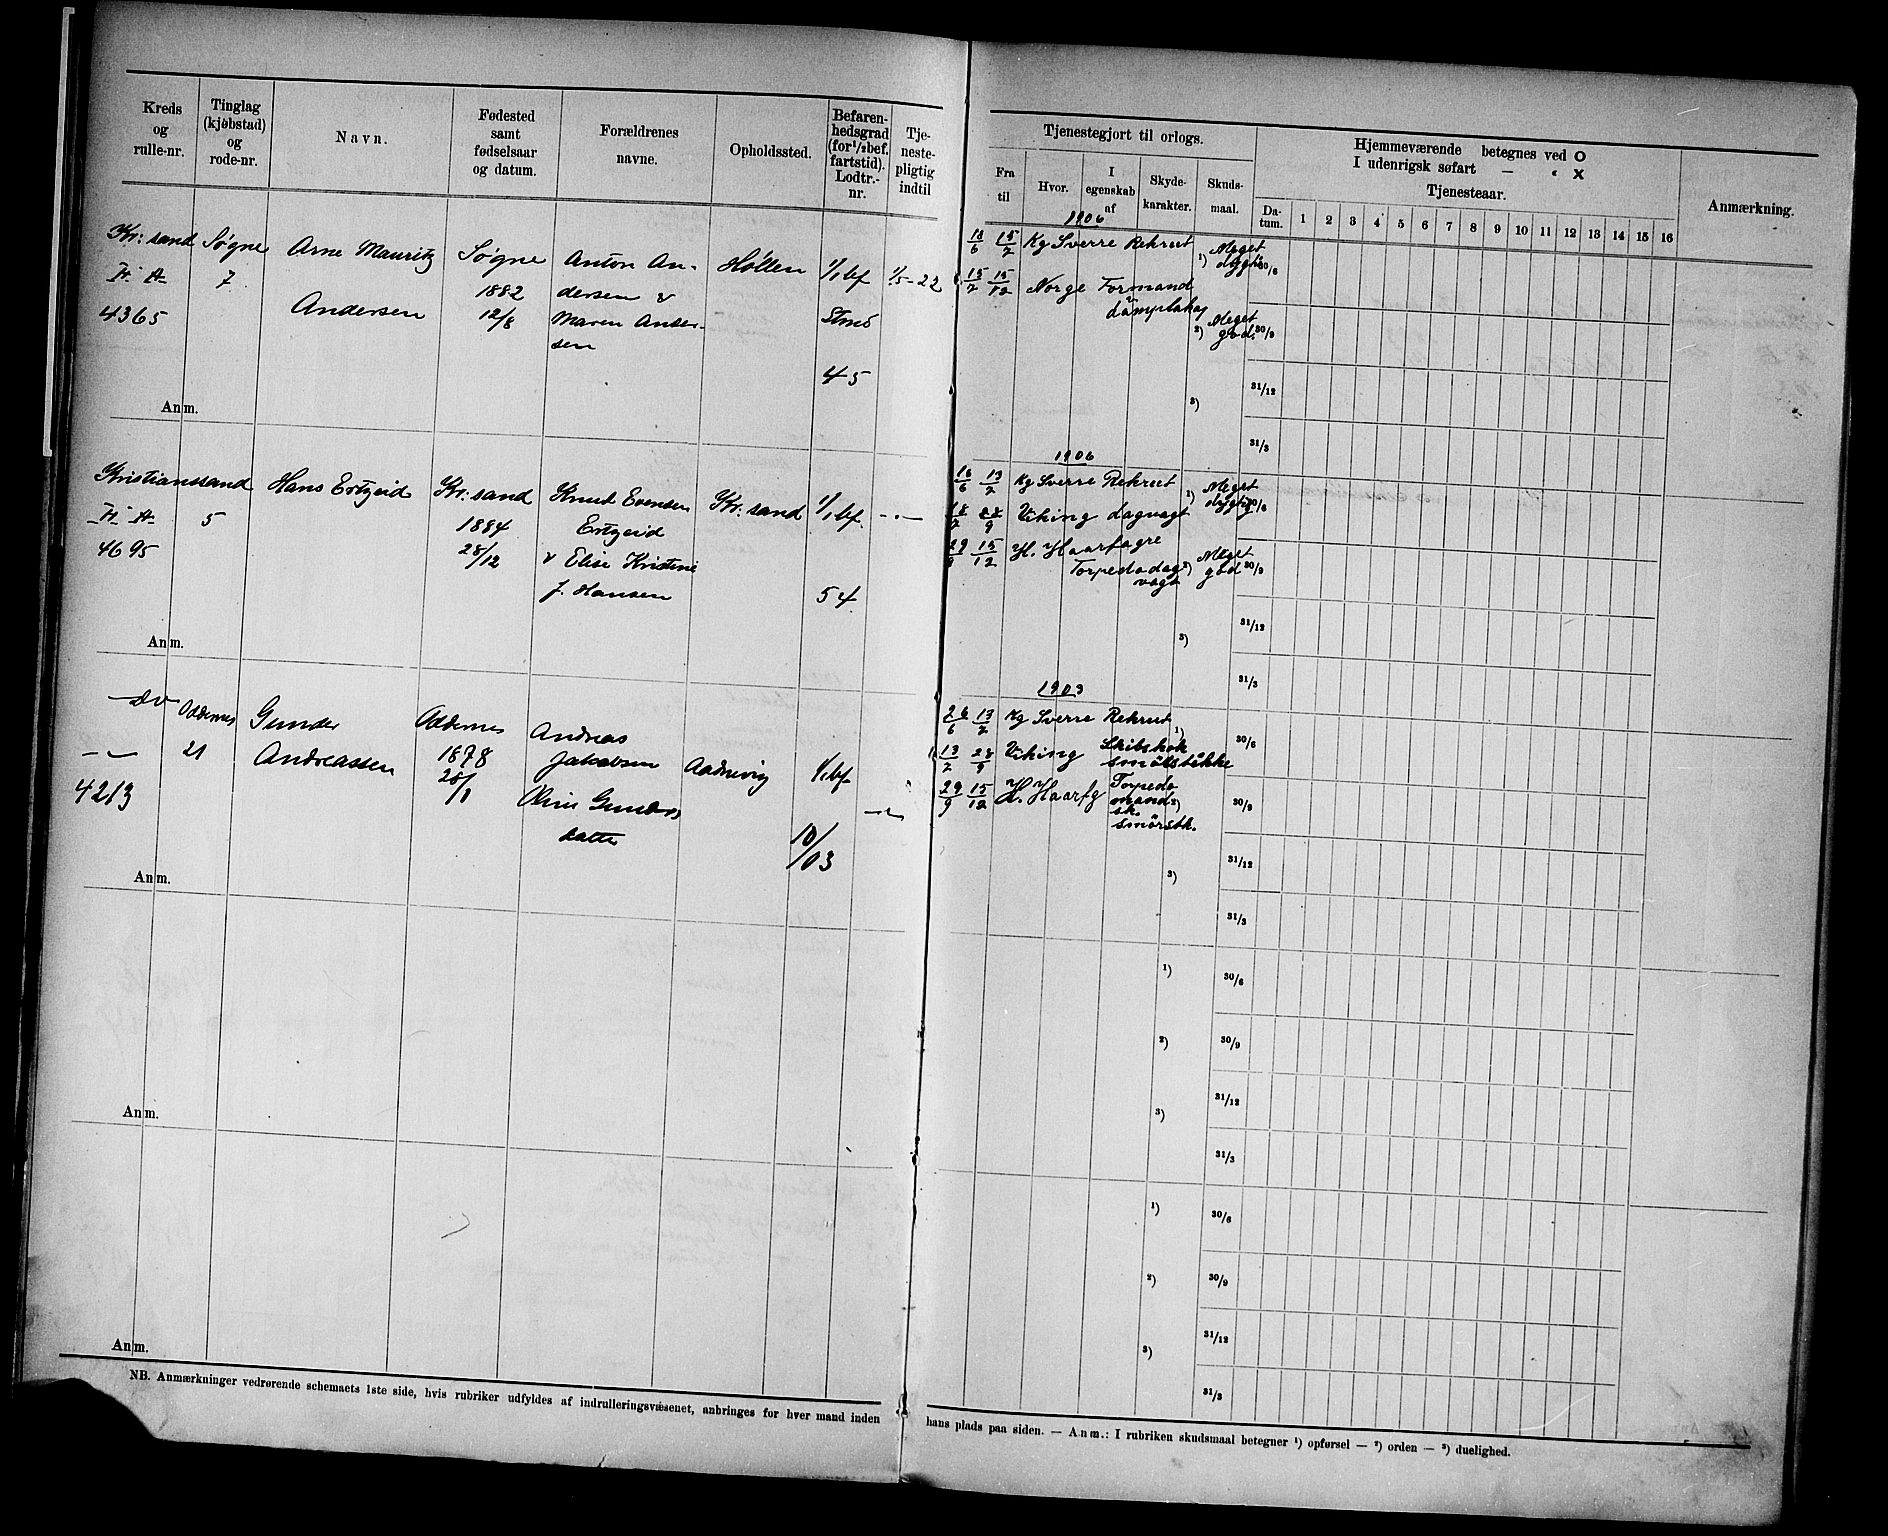 Kreds og rulle-nr.
Tinglag (kjøbstad) og rode-nr.
Navn.
Fødested samt fødselsaar og datum.
Forældrenes navne.
Opholdssted.
Befarenhedsgrad (for 1/2 bef. fartstid). Lodtr.-nr.
Tjenestepligtig indtil
Tjenestegjort til orlogs.
Fra til
Hvor.
I egenskab af
Skydekarakter.
Skudsmaal.
Hjemmeværende betegnes ved O
I udenrigsk søfart — „ X
Tjenesteaar.
Datum. 1 2 3 4 5 6 7 8 9 10 11 12 13 14 15 16
Anmærkning.
Kr:sand
4365
Søgne
7
Arne Mauritz
Andersen
Søgne
1882
12/8
Anton An-
dersen &
Maren Ander-
sen
Høllen
1/1 bf
45
1/5-22
1906
15/7 Kg Sverre Rekrut 1) Meget dygtig 30/6
15/7 15/12 Norge Formand
2) Meget god. 30/9
3) 31/12
31/3
Anm.
Kristianssand
4695
5
Hans Ertzeid
Kr:sand
1884
28/12
Knud Evensen
Ertzeid
& Elise Kristine
f. Hansen
Kr:sand
1/1 bf.
54
1906
16/6 13/7 Kg Sverre Rekrut 1) Meget dygtig 30/6
Viking dagvagt
15/12 H. Haarfagre
Torpedodag-
vagt
2) Meget god 30/9
3) 31/12
31/3
Anm.
do
4213
Oddernes
21
Gunder
Andreassen
Oddernes
1878
28/1
Andreas
Jakobsen
Gunders
datter
1/1 bf
10/03
1903
26/6 13/7 Kg Sverre Rekrut 1) 30/6
13/7 28/9 Viking Skibskok
29/9 15/12 H. Haarfg Torpedo
mand 2) 30/9
3) 31/12
31/3
Anm.
1) 30/6
2) 30/9
3) 31/12
31/3
Anm.
1) 30/6
2) 30/9
3) 31/12
31/3
Anm.
NB. Anmærkninger vedrørende schemaets 1ste side, hvis rubriker udfyldes af indrulleringsvæsenet, anbringes for hver mand inden hans plads paa siden. — Anm.: I rubriken skudsmaal betegner 1) opførsel — 2) orden — 3) duelighed.